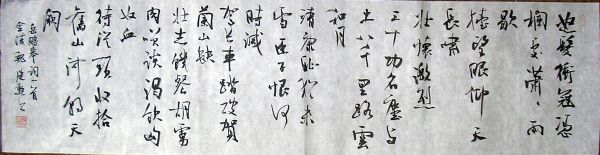 怒髮衝冠憑
欄處瀟々雨
歇
抬望眼仰天
長嘯
壯懷激烈
三十功名塵與
土八千里路雲
和月
靖康恥猶未
雪臣子恨何
時滅
駕長車踏破賀
蘭山缺
壯志飢餐胡虜
肉笑談渴飲匈
奴血
待從頭收拾
舊山河朝天
闕
岳鵬舉詞一首